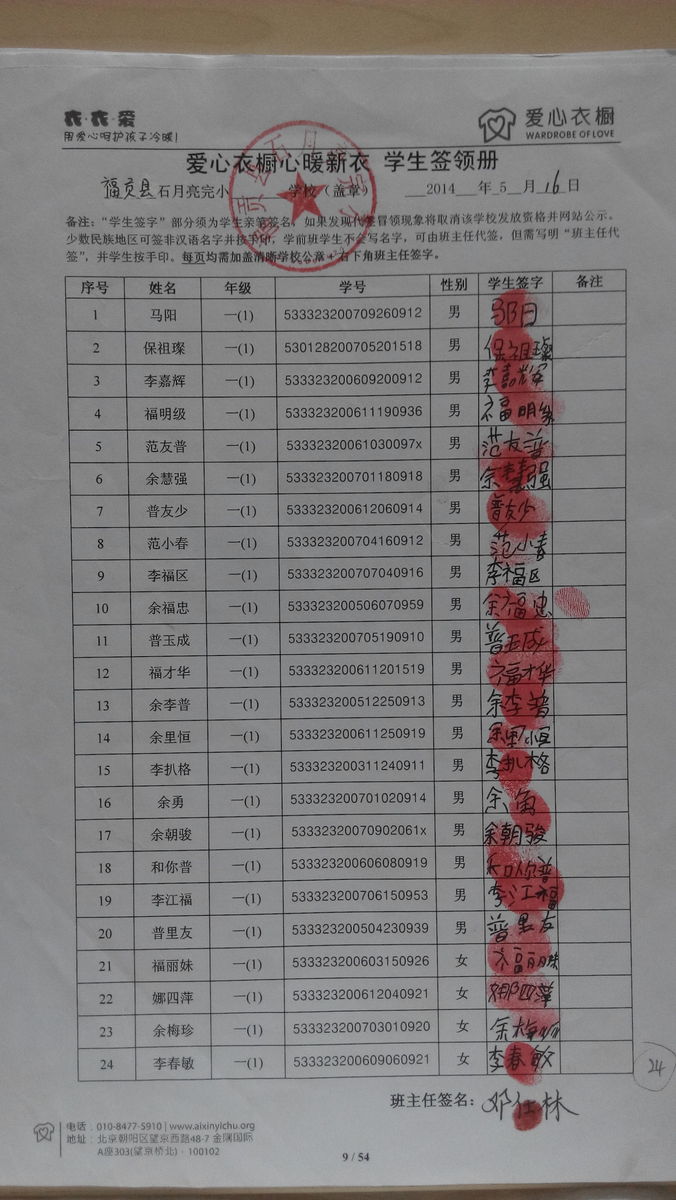 衣·衣·爱
用爱心呵护孩子冷暖!
爱心衣橱
WARDROBE OF LOVE
爱心衣橱心暖新衣 学生签领册
福贡县石月亮完小 学校（盖章） 2014 年 5 月 16 日
备注：“学生签字”部分须为学生亲笔签名，如果发现代签冒领现象将取消该学校发放资格并网站公示。
少数民族地区可签非汉语名字并按手印，学前班学生不会写名字，可由班主任代签，但需写明“班主任代
签”，并学生按手印。每页均需加盖清晰学校公章+右下角班主任签字。
序号 姓名 年级 学号 性别 学生签字 备注
1 马阳 一(1) 533323200709260912 男 马阳
2 保祖璨 一(1) 530128200705201518 男 保祖璨
3 李嘉辉 一(1) 533323200609200912 男 李嘉辉
4 福明级 一(1) 533323200611190936 男 福明级
5 范友普 一(1) 53332320061030097x 男 范友普
6 余慧强 一(1) 533323200701180918 男 余慧强
7 普友少 一(1) 533323200612060914 男 普友少
8 范小春 一(1) 533323200704160912 男 范小春
9 李福区 一(1) 533323200707040916 男 李福区
10 余福忠 一(1) 533323200506070959 男 余福忠
11 普玉成 一(1) 533323200705190910 男 普玉成
12 福才华 一(1) 533323200611201519 男 福才华
13 余李普 一(1) 533323200512250913 男 余李普
14 余里恒 一(1) 533323200611250919 男 余里恒
15 李扒格 一(1) 533323200311240911 男 李扒格
16 余勇 一(1) 533323200701020914 男 余勇
17 余朝骏 一(1) 53332320070902061x 男 余朝骏
18 和你普 一(1) 533323200606080919 男 和你普
19 李江福 一(1) 533323200706150953 男 李江福
20 普里友 一(1) 533323200504230939 男 普里友
21 福丽妹 一(1) 533323200603150926 女 福丽妹
22 娜四萍 一(1) 533323200612040921 女 娜四萍
23 余梅珍 一(1) 533323200703010920 女 余梅珍
24 李春敏 一(1) 533323200609060921 女 李春敏
24
班主任签名：邓仕林
电话：010-8477-5910 | www.aixinyichu.org
地址：北京朝阳区望京西路48-7 金隅国际
A座303(望京桥北)·100102
9 / 54